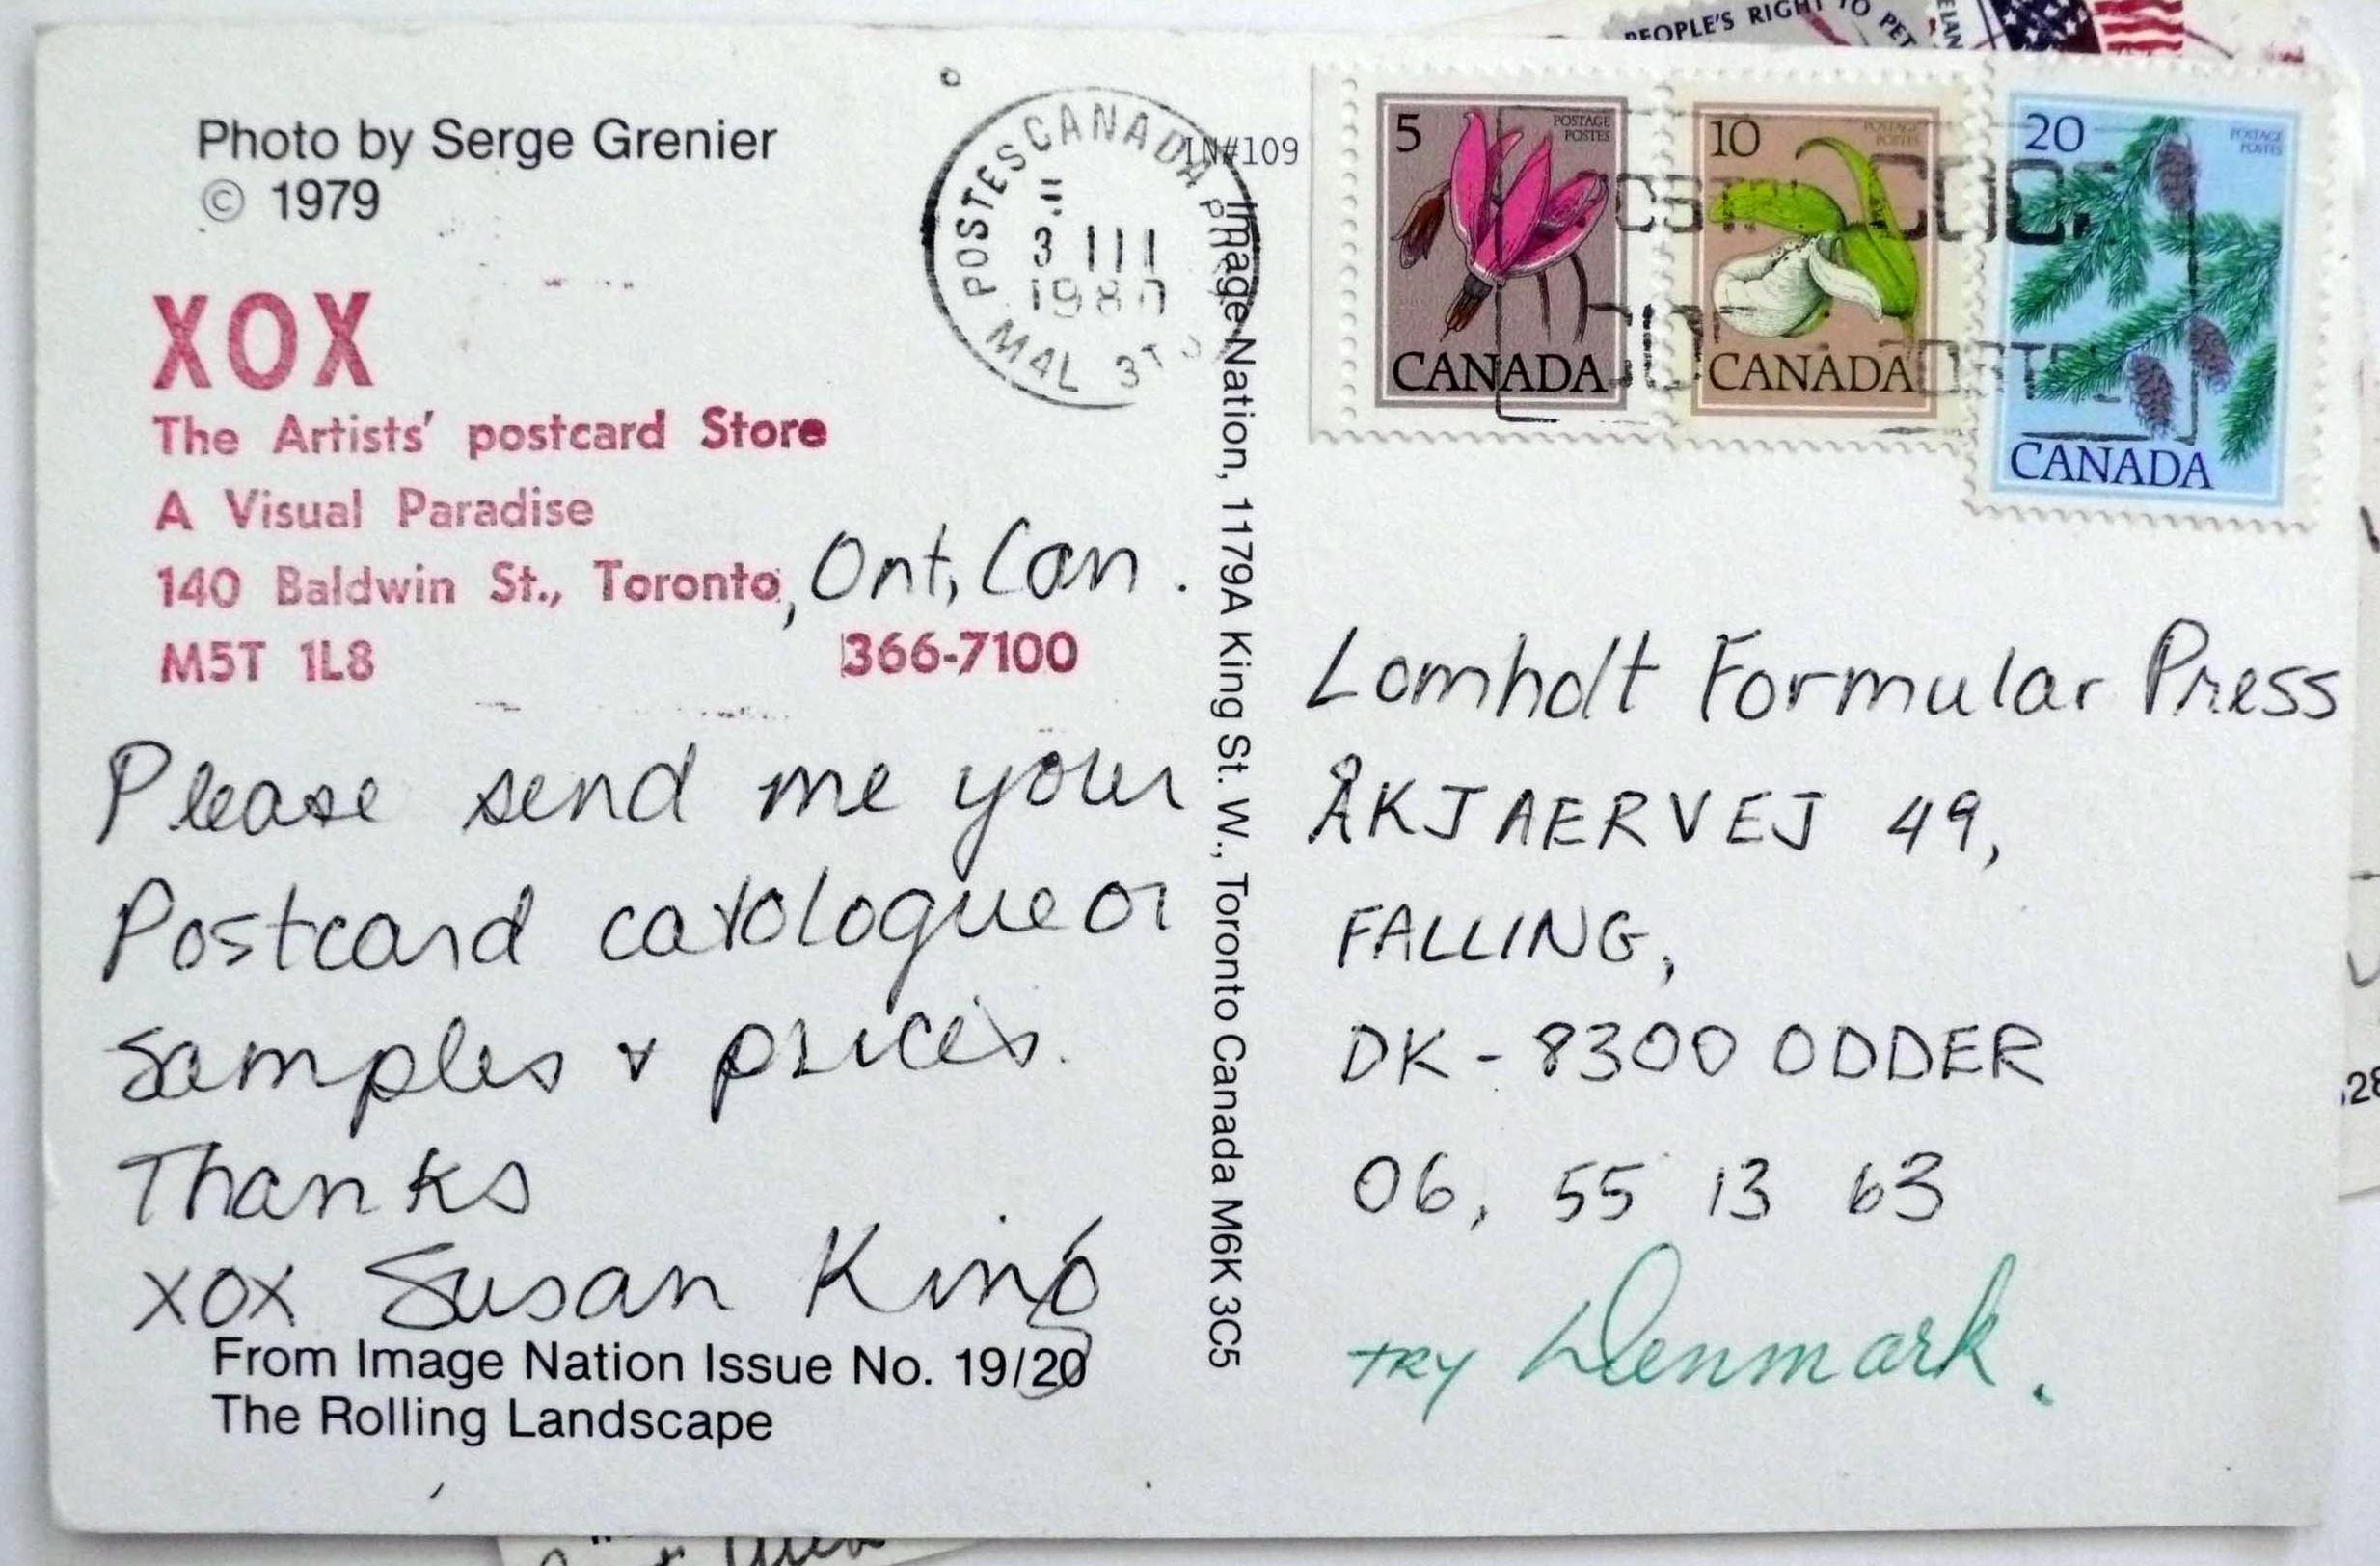 Photo by Serge Grenier
© 1979
XOX
The Artists' postcard Store
A Visual Paradise
140 Baldwin St., Toronto, Ont, Can.
M5T 1L8 366-7100
Please send me your
Postcard catologue or
samples & prices.
Thanks
XOX Susan King
From Image Nation Issue No. 19/20
The Rolling Landscape
POSTES CANADA
3 III
1980
M4L 3T
IN#109
Image Nation, 1179A King St. W., Toronto Canada M6K 3C5
PEOPLE'S RIGHT TO PET
5 POSTAGE
POSTES
CANADA
10 POSTAGE
POSTES
CANADA
20 POSTAGE
POSTES
CANADA
Lomholt Formular Press
ÅKJAERVEJ 49,
FALLING,
DK - 8300 ODDER
06, 55 13 63
TRY Denmark.